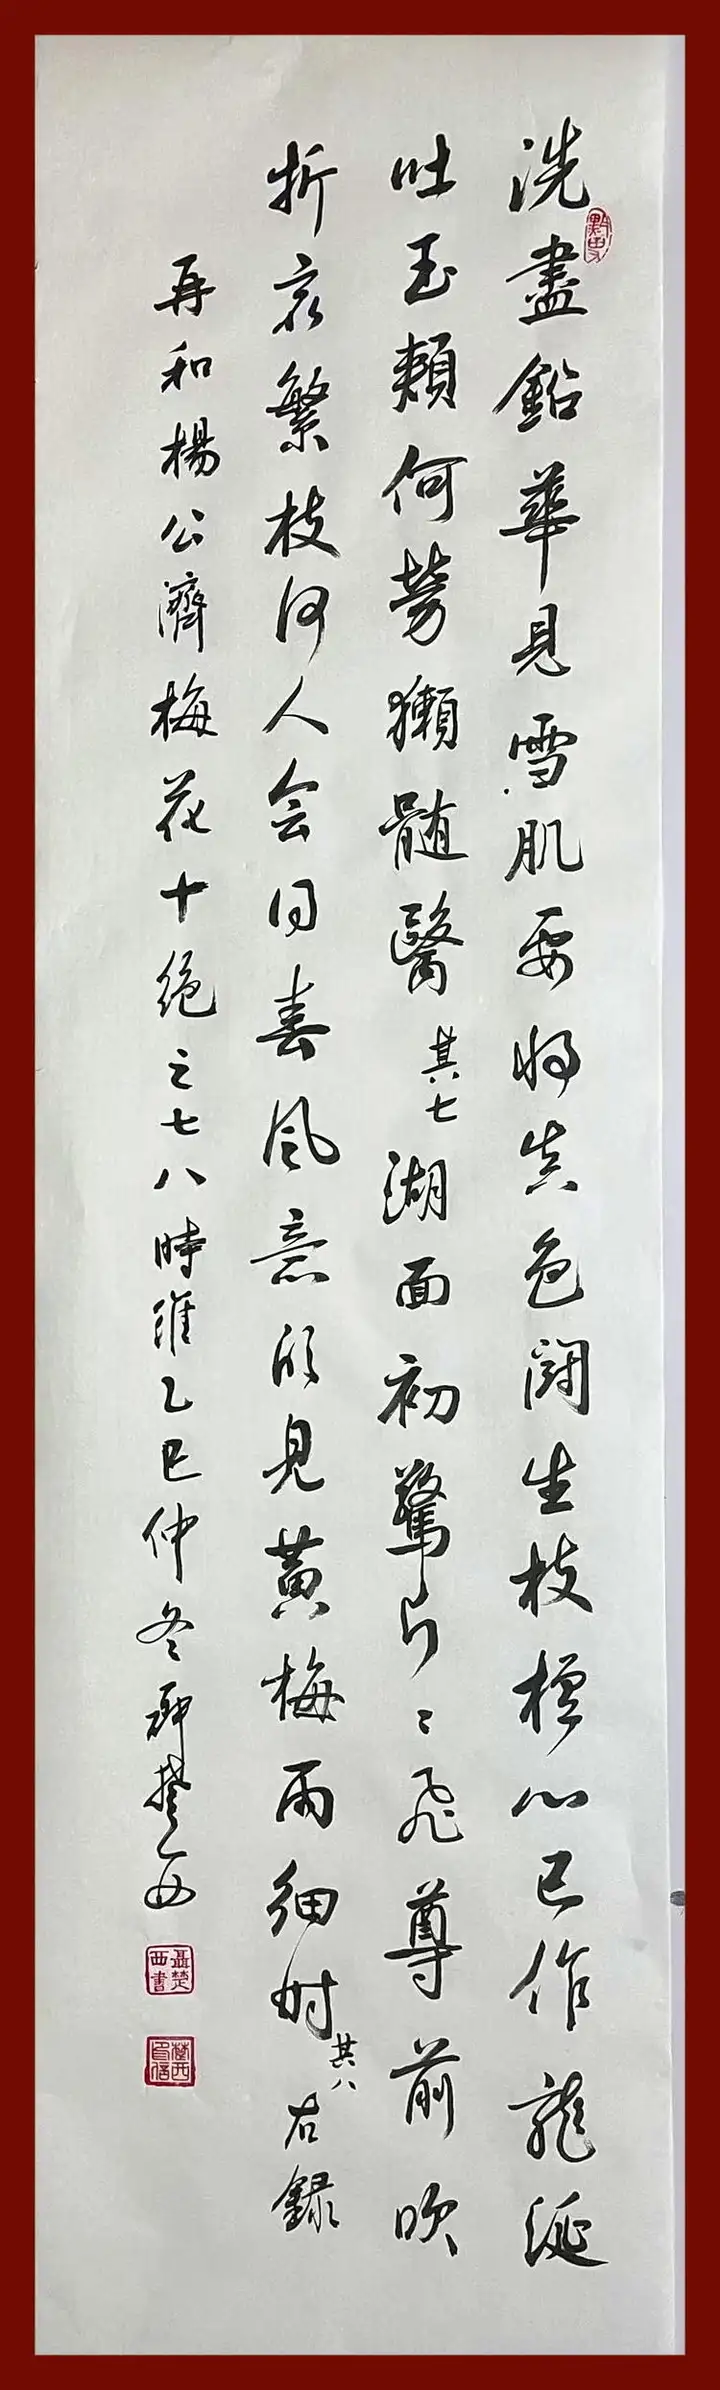 洗盡鉛華見雪肌要将真色鬪生枝檀心已作龍涎
吐玉頰何勞獺髓醫其七湖面初驚片〻飛尊前吹
折最繁枝何人会得春風意怕見黃梅雨細时其八右錄
再和楊公濟梅花十絕之七八時維乙巳仲冬聶楚西
聶楚西書